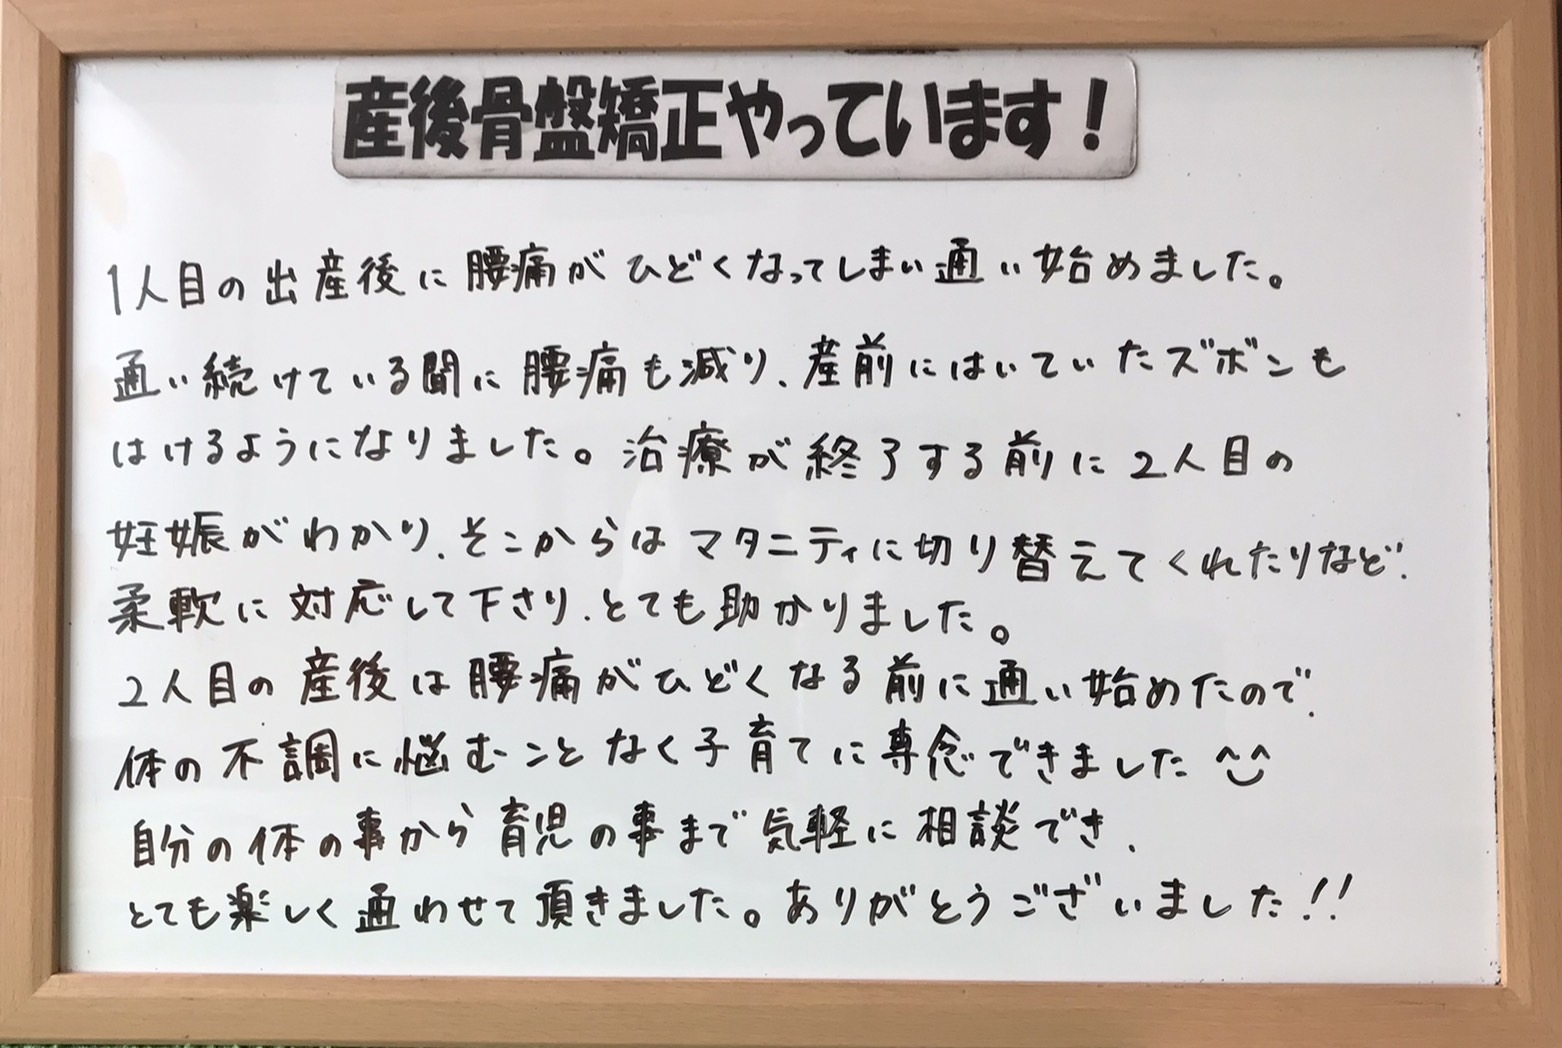 産後骨盤矯正やっています！
1人目の出産後に腰痛がひどくなってしまい通い始めました。
通い続けている間に腰痛も減り、産前にはいていたズボンも
はけるようになりました。治療が終了する前に2人目の
妊娠がわかり、そこからはマタニティに切り替えてくれたりなど、
柔軟に対応して下さり、とても助かりました。
2人目の産後は腰痛がひどくなる前に通い始めたので、
体の不調に悩むことなく子育てに専念できました^^
自分の体の事から育児の事まで気軽に相談でき、
とても楽しく通わせて頂きました。ありがとうございました!!